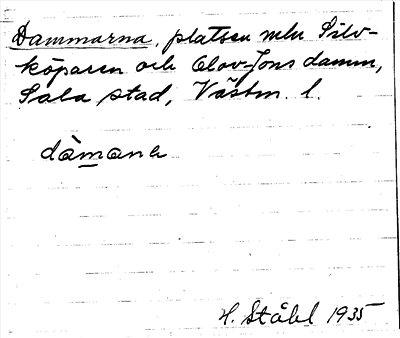 Dammarna, platsen mln Silv-
köparen och Olov-Jons damm,
Sala stad, Västm. l.
dàmana
H. Ståhl 1935